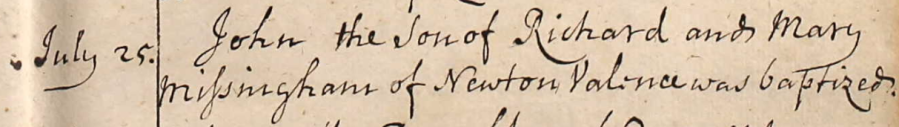 July 25. John the Son of Richard and Mary
Missingham of Newton Valence was baptized.